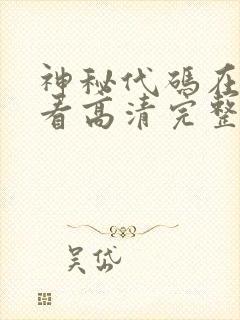 神秘代码在
看高清完整
吴岱